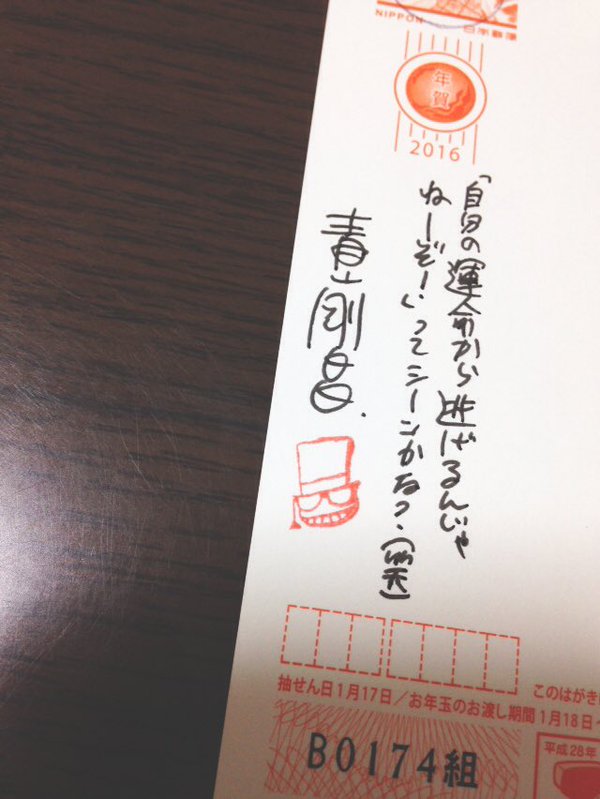 NIPPON 日本郵便
年賀
2016
「自分の運命から逃げるんじゃ
ねーぞ!いってシーンかな?(笑)
青山剛昌.
抽せん日1月17日/お年玉のお渡し期間1月18日~
このはがき
B0174組
平成28年